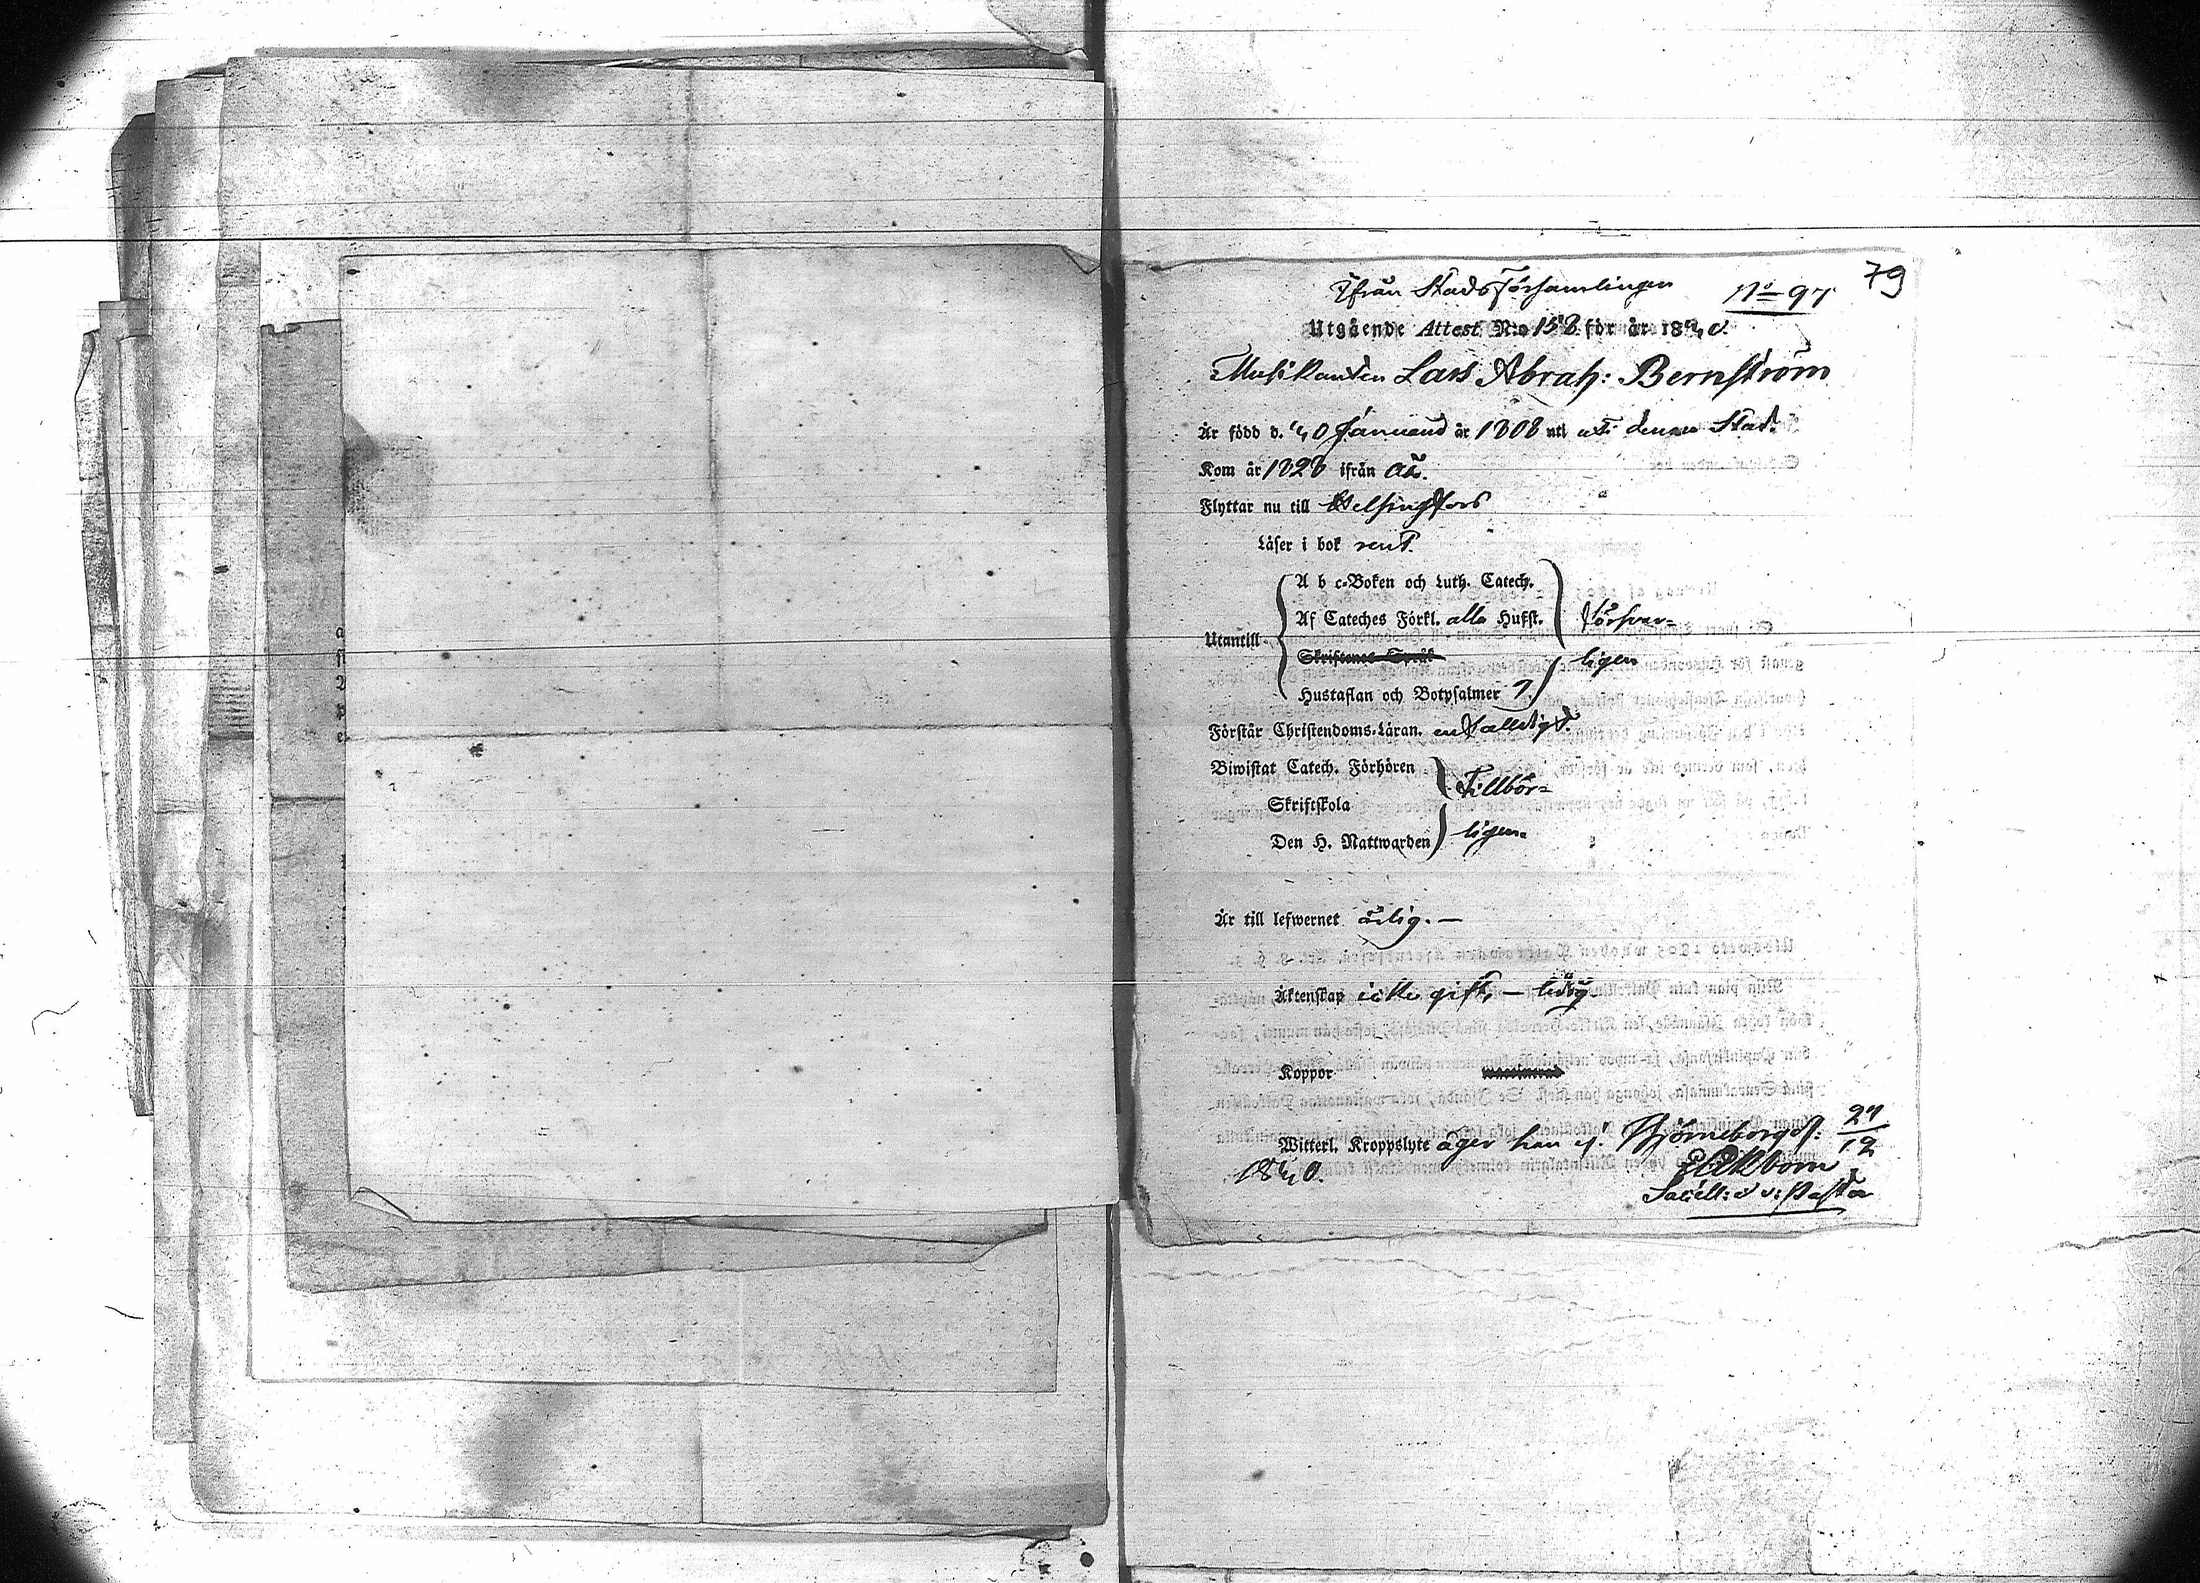 79
Ifrån Stadsförsamlingen No 97
Utgående Attest N:o 158 för år 1840
Musikanten Lars Abrah: Bernström
Är född d. Januarii år 1808 uti denna Stad.
Kom år 1828 ifrån
Flyttar nu till Helsingfors
Läser i bok rent.
A b c-Boken och Luth. Catech.
Af Cateches Förkl. alla Hufst. försvar-
Utantill
Skriftenes Språk ligen
Hustaflan och Botpsalmer 7.
Förstår Christendoms-Läran. enfalldigt.
Biwistat Catech. Förhören Tillbör-
Skriftskola
Den H. Nattwarden ligen.
Är till lefwernet ärlig. —
Äktenskap icke gift, — ledig
Koppor
Witterl. Kroppslyte äger han ej. Björneborg 27/12
1840.
Sacell: v: Pastor